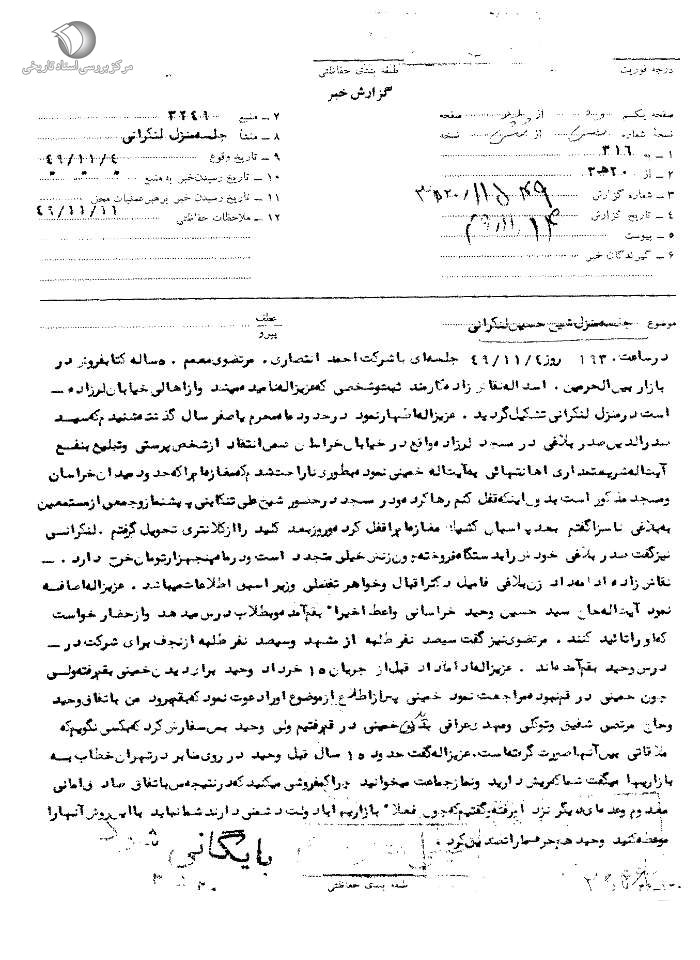 مرکز بررسی اسناد تاریخی
درجه فوریت
طبقه بندی حفاظتی
گزارش خبر
صفحه یکم از صفحه
نسخه شماره از نسخه
۱ ــ به ۳۱۶
۲ ــ از ۲۰ ه ۳
۳ ــ شماره گزارش
۴ ــ تاریخ گزارش
۵ ــ پیوست
۶ ــ گیرندگان خبر
۷ ــ منبع ۳۲۴۹
۸ ــ منشأ جلسه منزل لنکرانی
۹ ــ تاریخ وقوع ۴۹/۱۱/۴
۱۰ ــ تاریخ رسیدن خبر به منبع
۱۱ ــ تاریخ رسیدن خبر برهبر عملیات محل ۴۹/۱۱/۱۱
۱۲ ــ ملاحظات حفاظتی
موضوع جلسه منزل شیخ حسین لنکرانی
عطف
پیرو
در ساعت ۱۹۳۰ روز ۴۹/۱۱/۴ جلسه‌ای با شرکت احمد انتصاری . مرتضوی معمم ۵۰ ساله کتابفروش در
بازار بین الحرمین . اسداله نقاش زاده کارمند ثبت و شخصی که عزیزاله نامیده میشد و از اهالی خیابان لرزاده ــ
است در منزل لنکرانی تشکیل گردید . عزیزاله اظهار نمود در حدود ماه محرم یا صفر سال گذشته شنیدم که سید
صدرالدین صدر بلاغی در مسجد لرزاده واقع در خیابان خراسان ضمن انتقاد از شخص پرستی و تبلیغ بنفع
آیت‌اله شریعتمداری اهانتهائی به آیت‌اله خمینی نمود بطوری ناراحت شدم که مغازه‌ام را که حدود میدان خراسان
و مسجد مذکور است بدون اینکه قفل کنم رها کرده و در مسجد در حضور شیخ علی تنکابنی پیشنماز و جمعی از مستمعین
به بلاغی ناسزا گفتم بعد پاسبان کشیک مغازه‌ام را قفل کرد و روز بعد کلید را از کلانتری تحویل گرفتم . لنکرانی
نیز گفت صدر بلاغی خودش را به دستگاه فروخته چون زنش خیلی متجدد است و در ماه پنجهزار تومان خرج دارد . ــ
نقاش زاده ادامه داد زن بلاغی فامیل دکتر اقبال و خواهر تفضلی وزیر اسبق اطلاعات میباشد . عزیزاله اضافه
نمود آیت‌اله حاج سید حسین وحید خراسانی واعظ اخیرا" بقم آمده و بطلاب درس میدهد و از حضار خواست
که او را تائید کنند . مرتضوی نیز گفت سیصد نفر طلبه از مشهد و سیصد نفر طلبه از نجف برای شرکت در ــ
درس وحید بقم آمده‌اند . عزیزاله ادامه داد قبل از جریان ۱۵ خرداد وحید برای دیدن خمینی بقم رفته ولی
چون خمینی در قم نبوده مراجعت نمود خمینی پس از اطلاع از موضوع او را دعوت نمود که بقم برود من باتفاق وحید
و حاج مرتضی شفیق و توکلی و مهدی عراقی بدیدن خمینی در قم رفتیم ولی وحید بمن سفارش کرد که بکسی نگویم که
ملاقاتی بین آنها صورت گرفته است. عزیزاله گفت حدود ۱۵ سال قبل وحید در روی منابر در تهران خطاب به
بازاریها میگفت شما که ریش دارید و نماز جماعت میخوانید چرا کمفروشی میکنید که در نتیجه من باتفاق صادق امانی
و عده‌ای دیگر نزد او رفته و گفتیم که چون فعلا" بازاریها با دولت دشمنی دارند شما نباید با این روش آنها را
موعظه کنید وحید هم حرف ما را تصدیق کرد .
بایگانی شود
طبقه بندی حفاظتی